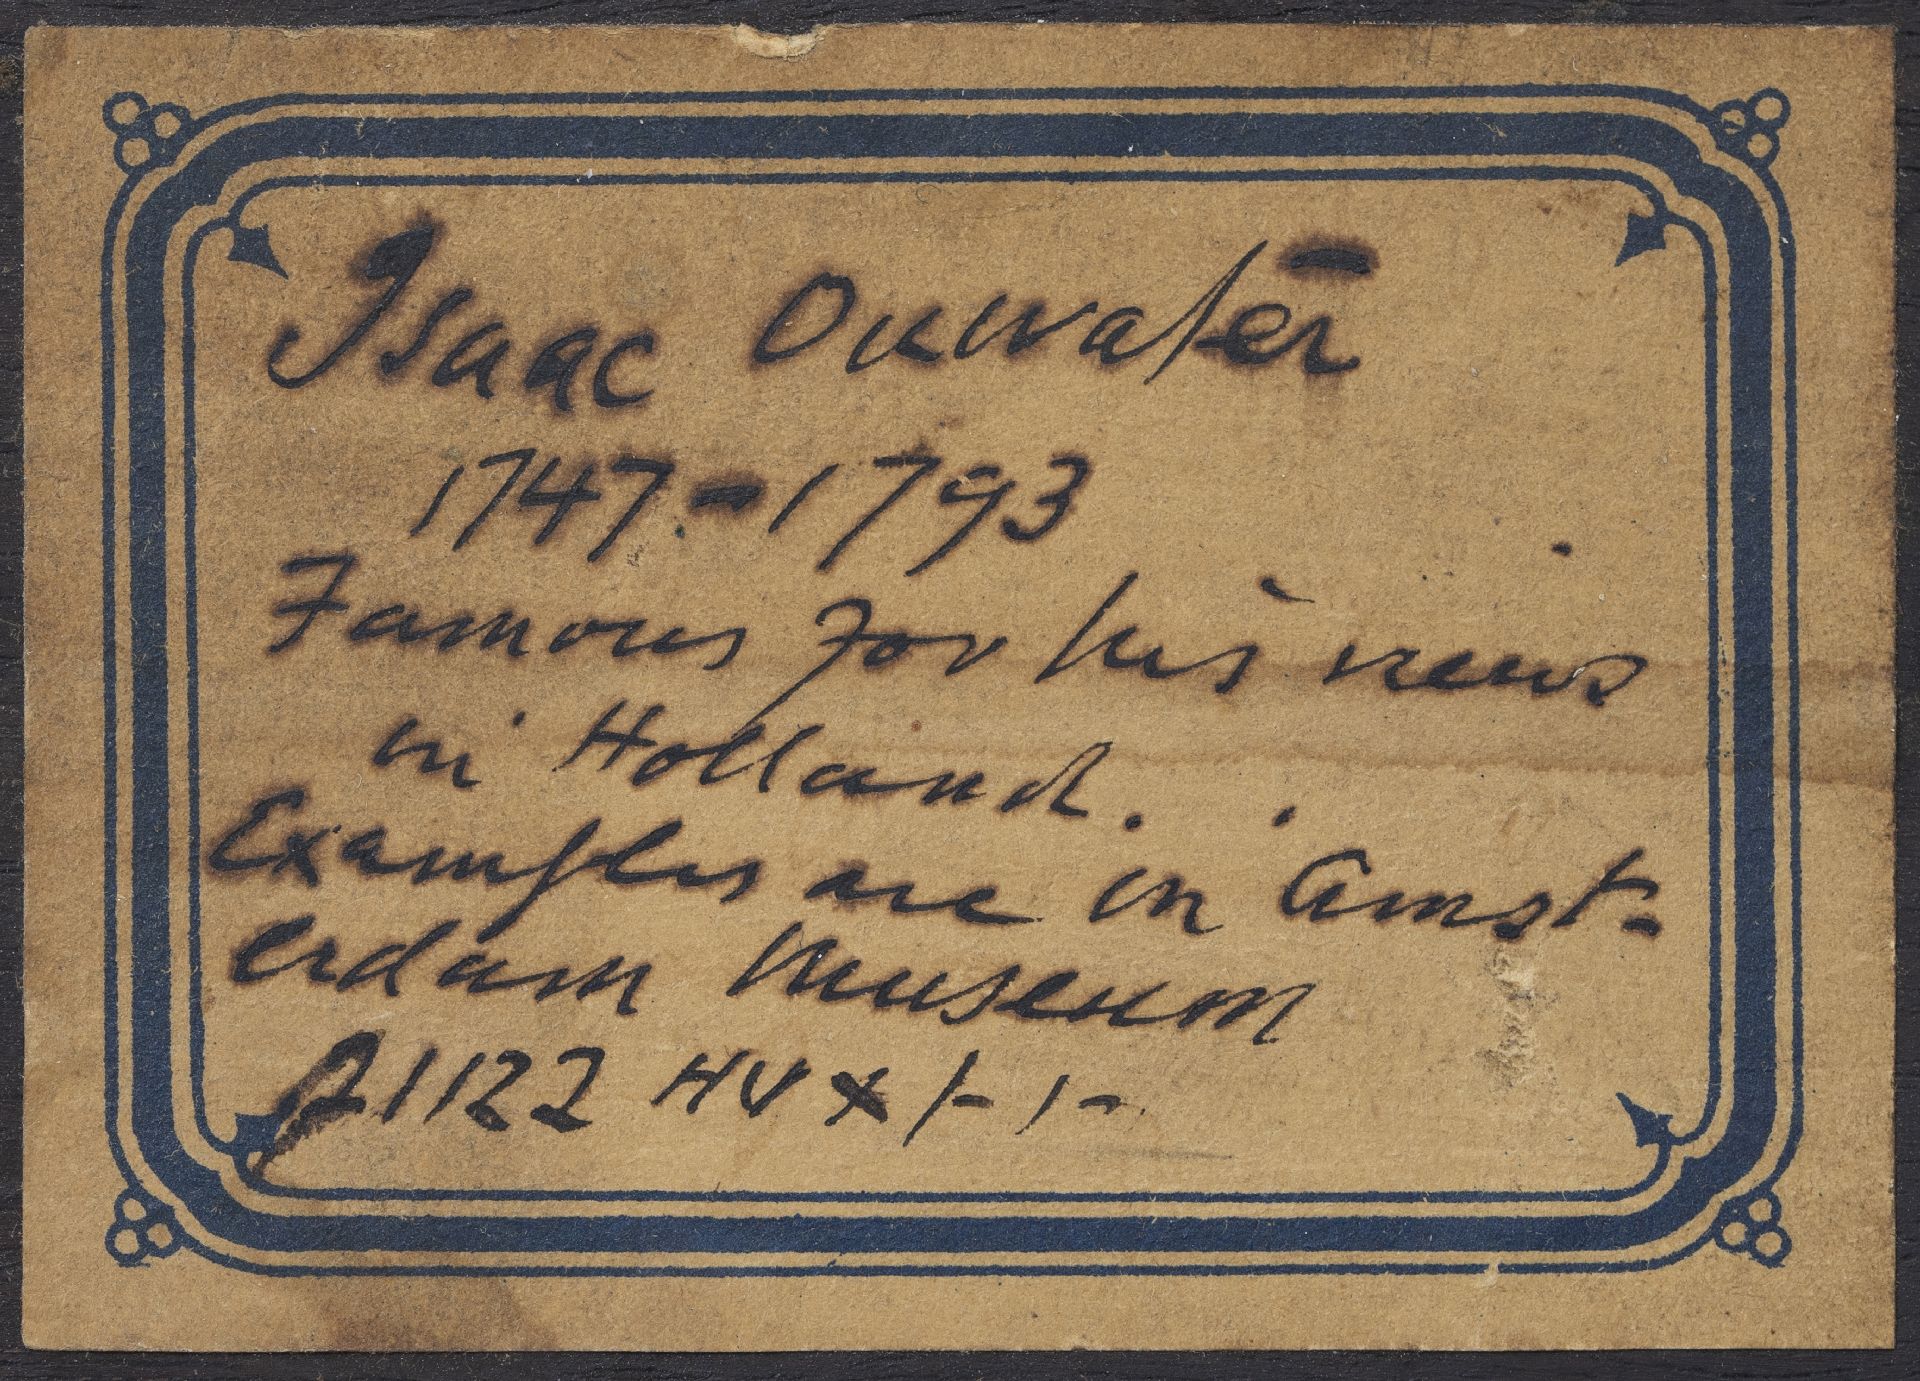 Isaac Ouwater
1747-1793
Famous for his views
in Holland.
Examples are in Amst-
erdam Museum
21122 HVX/-1-